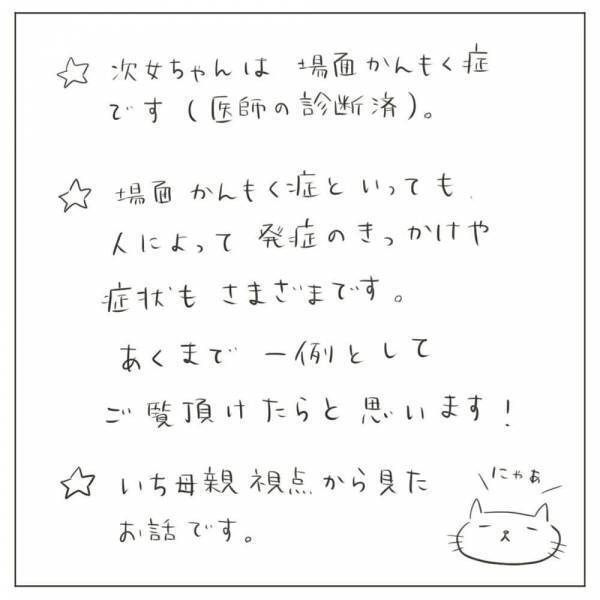 ☆ 次女ちゃんは 場面かんもく症
です(医師の診断済)。
☆ 場面かんもく症といっても、
人によって 発症のきっかけや
症状も さまざまです。
あくまで 一例として
ご覧頂けたらと思います!
☆ いち母親視点から見た
お話です。
にゃあ